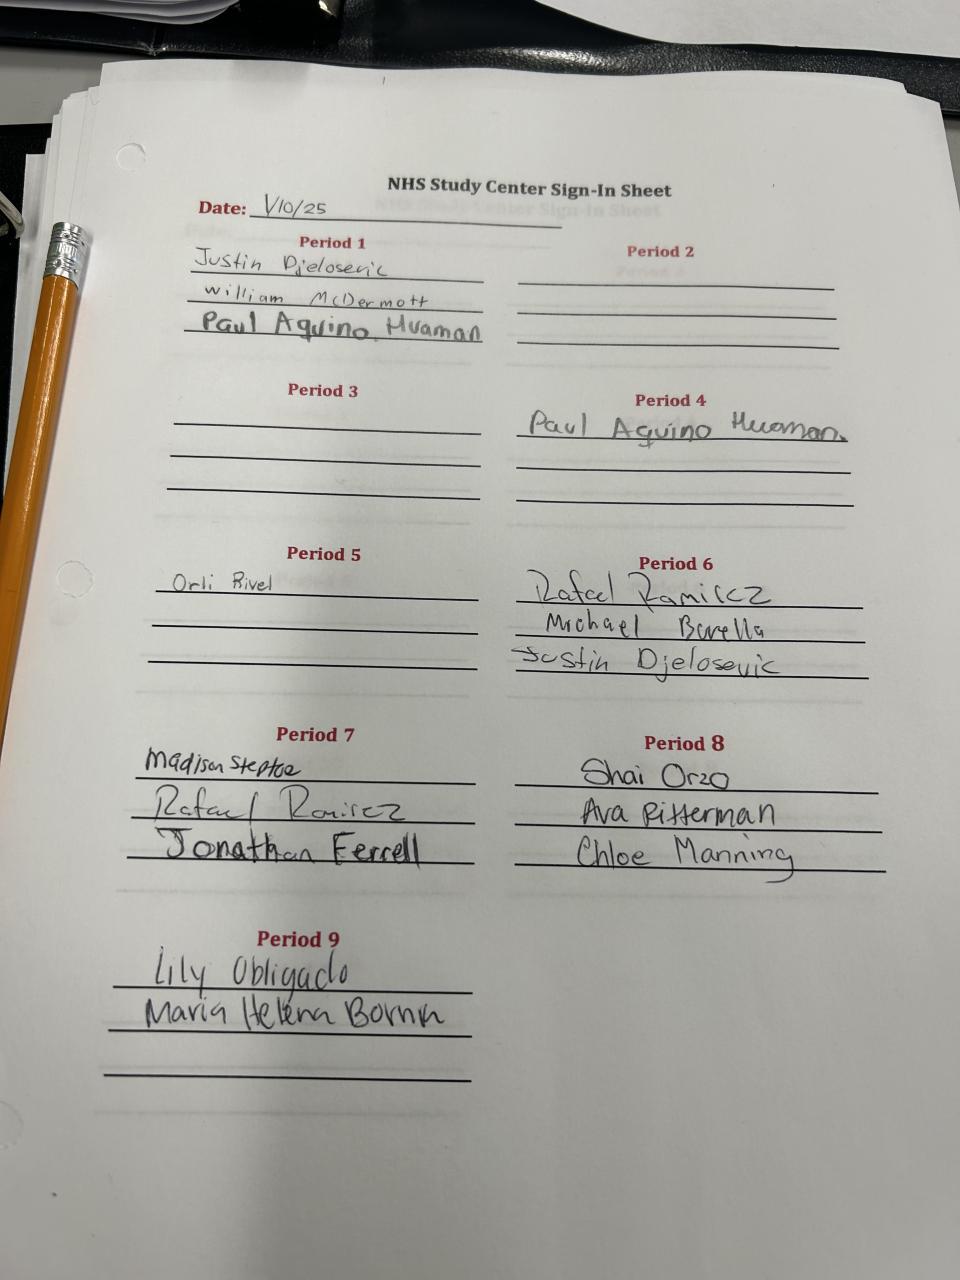 NHS Study Center Sign-In Sheet
Date: 1/10/25
Period 1
Justin Djelosevic
William McDermott
Paul Aquino Huaman
Period 2
Period 3
Period 4
Paul Aquino Huaman.
Period 5
Orli Rivel
Period 6
Rafael Ramirez
Michael Borella
Justin Djelosevic
Period 7
Madison Steptoe
Rafael Ramirez
Jonathan Ferrell
Period 8
Shai Orzo
Ava Ritterman
Chloe Manning
Period 9
Lily Obligado
Maria Helena